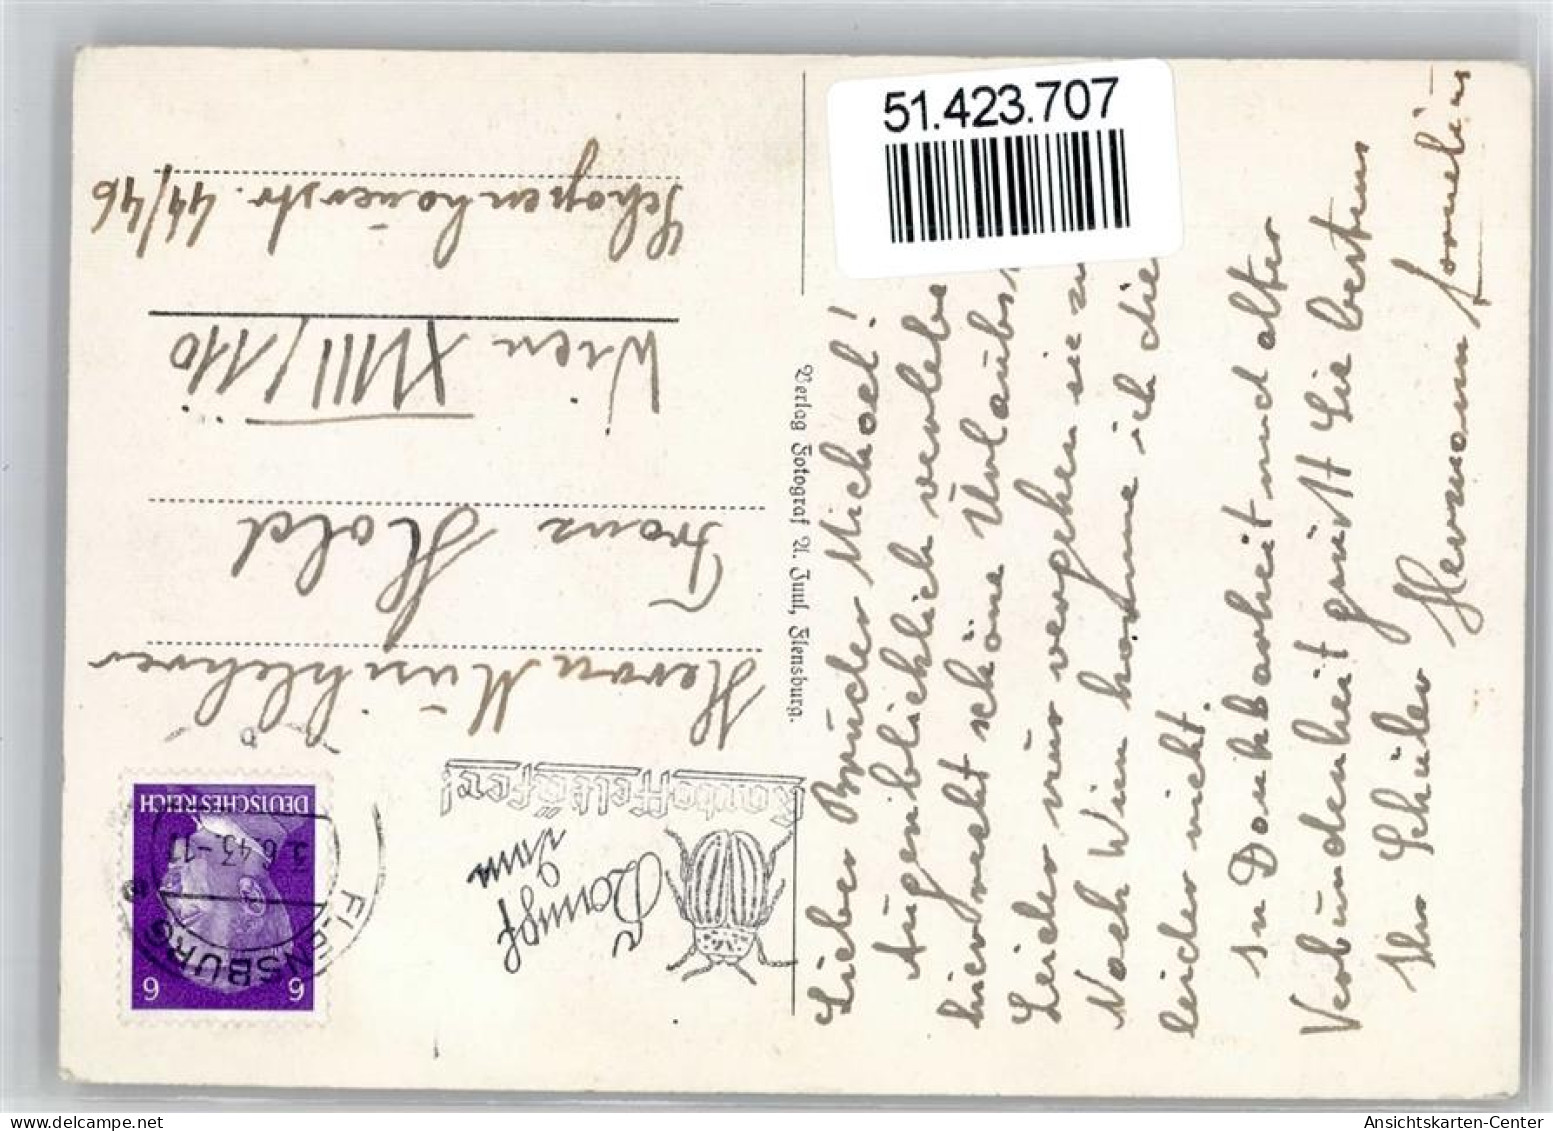 51.423.707
Lieber Bruder Michael!
Augenblicklich verlebe
hier recht schöne Urlaubs
Leider nur vergehen sie zu
Nach Wien komme ich die
leider nicht.
In Dankbarkeit und alter
Verbundenheit grüßt Sie bestens
Ihr Schüler Hermann
Verlag Fotograf A. Juul, Flensburg.
DEUTSCHES REICH
6 6
FLENSBURG
3.6.43-11
Kampf
dem
Kartoffelkäfer!
Herrn Musiklehrer
Franz Hold
Wien XVIII/110
Schopenhauerstr. 44/46
Ansichtskarten-Center